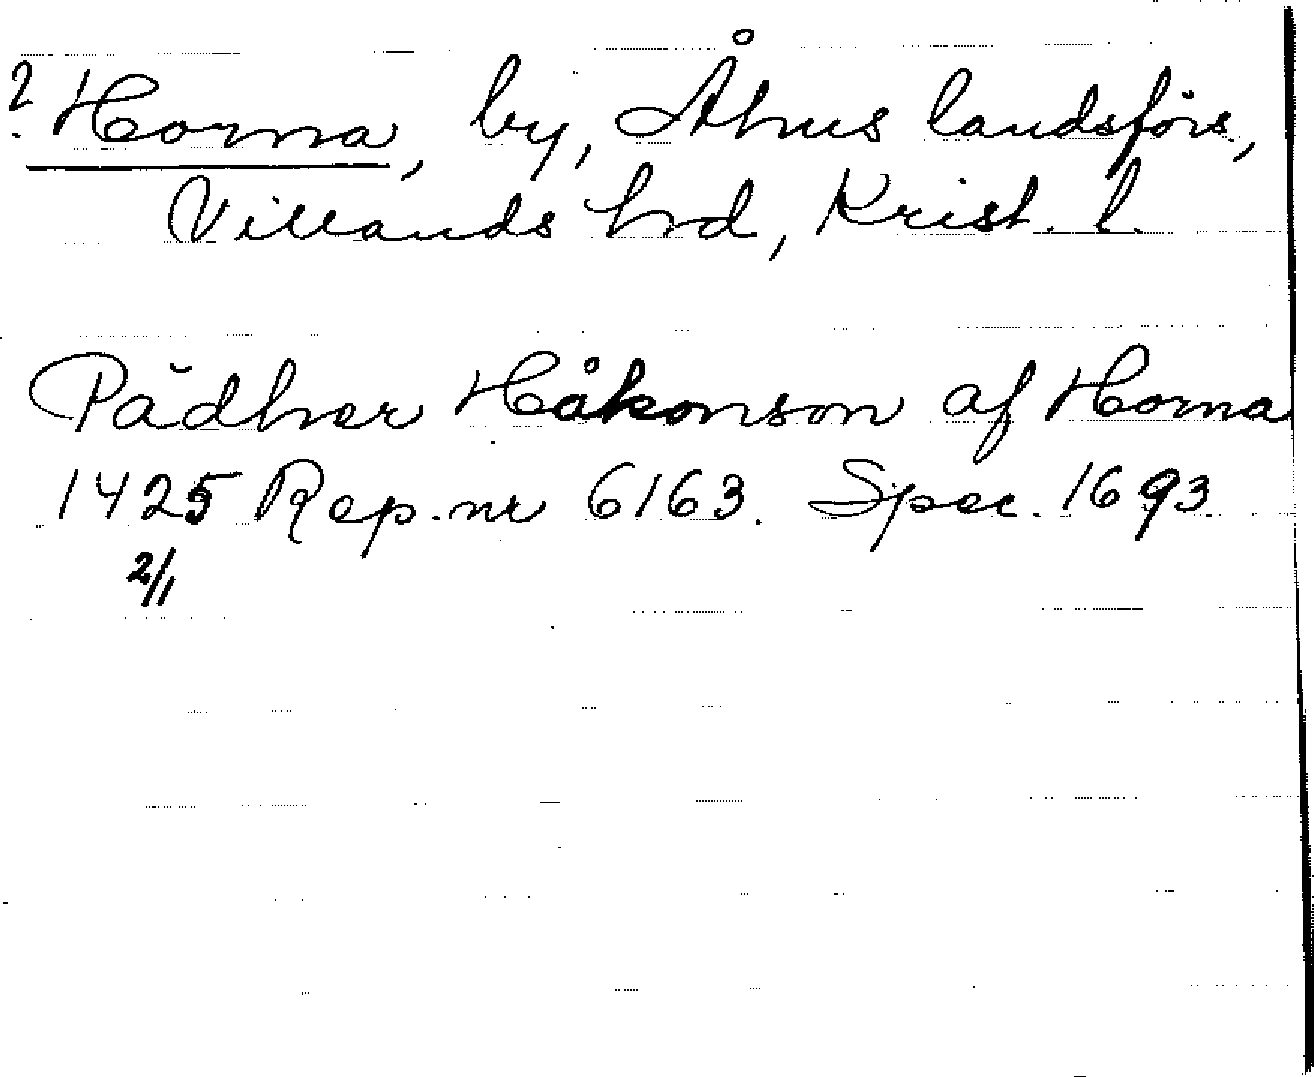 ? Horna, by, Åhus landsförs.,
Villands hrd, Krist. l.
Pädher Håkonson af Horna
1425 Rep. nr 6163. Spec. 1693
2/1